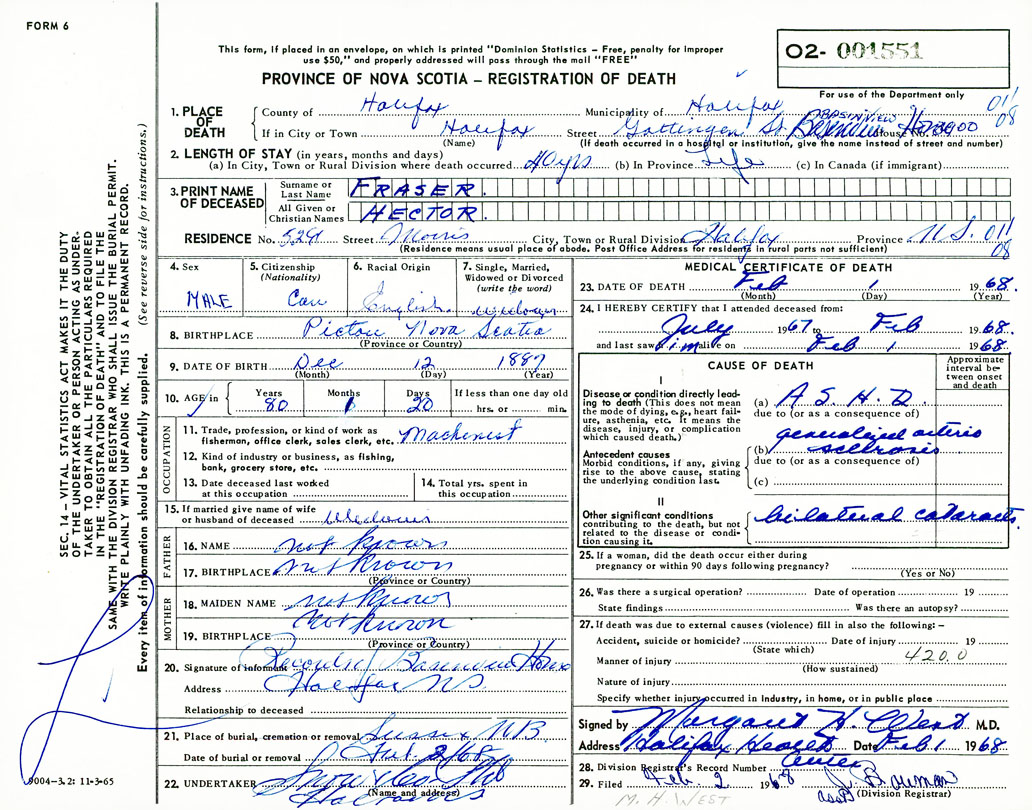 FORM 6
This form, if placed in an envelope, on which is printed "Dominion Statistics – Free, penalty for improper
use $50," and properly addressed will pass through the mail "FREE"
PROVINCE OF NOVA SCOTIA – REGISTRATION OF DEATH
02- 001551
For use of the Department only
011
08
1. PLACE OF DEATH
County of Halifax Municipality of Halifax
If in City or Town Halifax Street Gottingen St. BASINVIEW
(Name) (If death occurred in a hospital or institution, give the name instead of street and number)
2. LENGTH OF STAY (in years, months and days)
(a) In City, Town or Rural Division where death occurred 40 yrs (b) In Province Life (c) In Canada (if immigrant)
3. PRINT NAME OF DECEASED
Surname or Last Name FRASER.
All Given or Christian Names HECTOR.
RESIDENCE No. 5291 Street Morris City, Town or Rural Division Halifax Province N.S. 011
(Residence means usual place of abode. Post Office Address for residents in rural parts not sufficient) 08
4. Sex MALE
5. Citizenship (Nationality) Can
6. Racial Origin English
7. Single, Married, Widowed or Divorced (write the word) widower
8. BIRTHPLACE Pictou Nova Scotia
(Province or County)
9. DATE OF BIRTH Dec 12 1887
(Month) (Day) (Year)
10. AGE in Years 80 Months 1 Days 20 If less than one day old hrs. or min.
OCCUPATION
11. Trade, profession, or kind of work as fisherman, office clerk, sales clerk, etc. Machinist
12. Kind of industry or business, as fishing, bank, grocery store, etc.
13. Date deceased last worked at this occupation
14. Total yrs. spent in this occupation
15. If married give name of wife or husband of deceased
FATHER
16. NAME not known
17. BIRTHPLACE not known
(Province or Country)
MOTHER
18. MAIDEN NAME not known
19. BIRTHPLACE not known
(Province or Country)
20. Signature of informant Basinview Home
Address Halifax NS
Relationship to deceased
21. Place of burial, cremation or removal Sussex NB
Date of burial or removal Feb.
22. UNDERTAKER
(Name and address)
MEDICAL CERTIFICATE OF DEATH
23. DATE OF DEATH Feb 1 1968.
(Month) (Day) (Year)
24. I HEREBY CERTIFY that I attended deceased from:
July 1967 to Feb 1968.
and last saw him alive on Feb 1 1968.
CAUSE OF DEATH
Approximate interval between onset and death
I
Disease or condition directly leading to death (This does not mean the mode of dying, e.g., heart failure, asthenia, etc. It means the disease, injury, or complication which caused death.)
(a) A S H D.
due to (or as a consequence of)
Antecedent causes
Morbid conditions, if any, giving rise to the above cause, stating the underlying condition last.
(b) generalized arterio sclerosis
due to (or as a consequence of)
(c)
II
Other significant conditions contributing to the death, but not related to the disease or condition causing it.
bilateral cataracts.
25. If a woman, did the death occur either during
pregnancy or within 90 days following pregnancy?
(Yes or No)
26. Was there a surgical operation? Date of operation 19
State findings Was there an autopsy?
27. If death was due to external causes (violence) fill in also the following: –
Accident, suicide or homicide? Date of injury 19
(State which) 420.0
Manner of injury
(How sustained)
Nature of injury
Specify whether injury occurred in Industry, in home, or in public place
Signed by Margaret H West M.D.
Address Halifax Health Center Date Feb 1 1968
28. Division Registrar's Record Number
29. Filed Feb 2 1968
(Division Registrar)
M. H. WEST
SEC. 14 – VITAL STATISTICS ACT MAKES IT THE DUTY
OF THE UNDERTAKER OR PERSON ACTING AS UNDER-
TAKER TO OBTAIN ALL THE PARTICULARS REQUIRED
IN THE "REGISTRATION OF DEATH" AND TO FILE THE
SAME WITH THE DIVISION REGISTRAR WHO SHALL ISSUE THE BURIAL PERMIT.
WRITE PLAINLY WITH UNFADING INK. THIS IS A PERMANENT RECORD.
Every item of information should be carefully supplied. (See reverse side for instructions.)
9004-3.2: 11-3-65